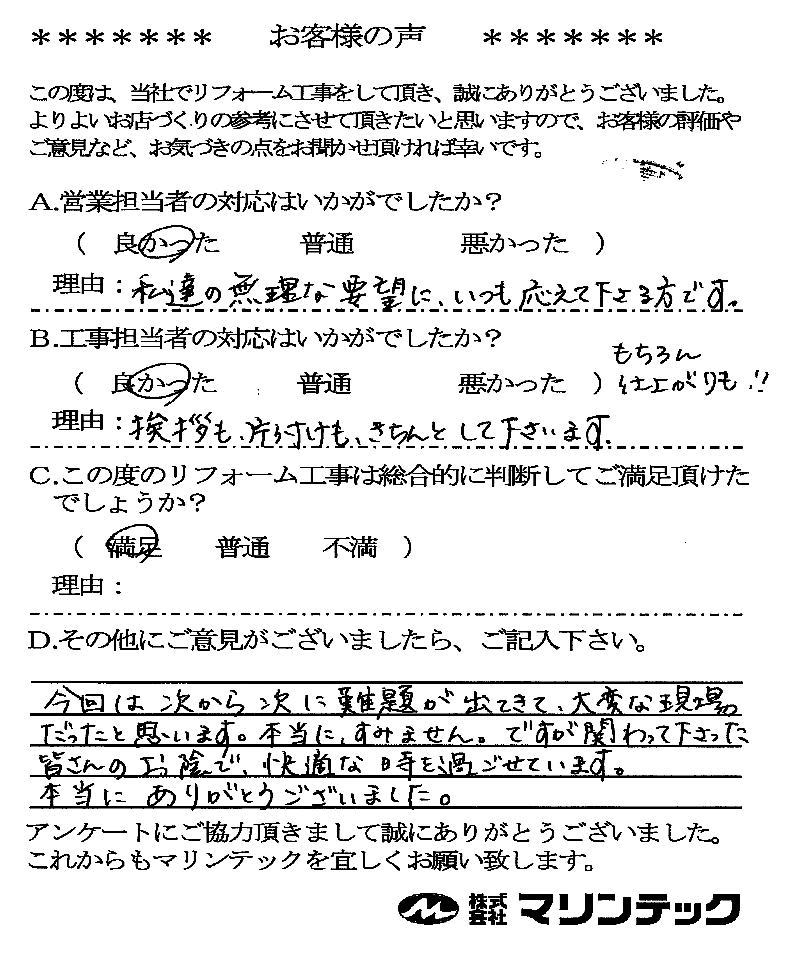 ＊＊＊＊＊＊＊　お客様の声　＊＊＊＊＊＊＊
この度は、当社でリフォーム工事をして頂き、誠にありがとうございました。
よりよいお店づくりの参考にさせて頂きたいと思いますので、お客様の評価や
ご意見など、お気づきの点をお聞かせ頂ければ幸いです。
A.営業担当者の対応はいかがでしたか？
（　良かった　　　普通　　　　悪かった　）
理由：私達の無理な要望に、いつも応えて下さる方です。
B.工事担当者の対応はいかがでしたか？
（　良かった　　　普通　　　　悪かった　）
もちろん
仕上がりも！！
理由：挨拶も、片付けも、きちんとして下さいます。
C.この度のリフォーム工事は総合的に判断してご満足頂けた
でしょうか？
（　満足　　普通　　不満　）
理由：
D.その他にご意見がございましたら、ご記入下さい。
今回は次から次に難題が出てきて、大変な現場
だったと思います。本当に、すみません。ですが関わって下さった
皆さんのお陰で、快適な時を過ごせています。
本当にありがとうございました。
アンケートにご協力頂きまして誠にありがとうございました。
これからもマリンテックを宜しくお願い致します。
株式会社 マリンテック